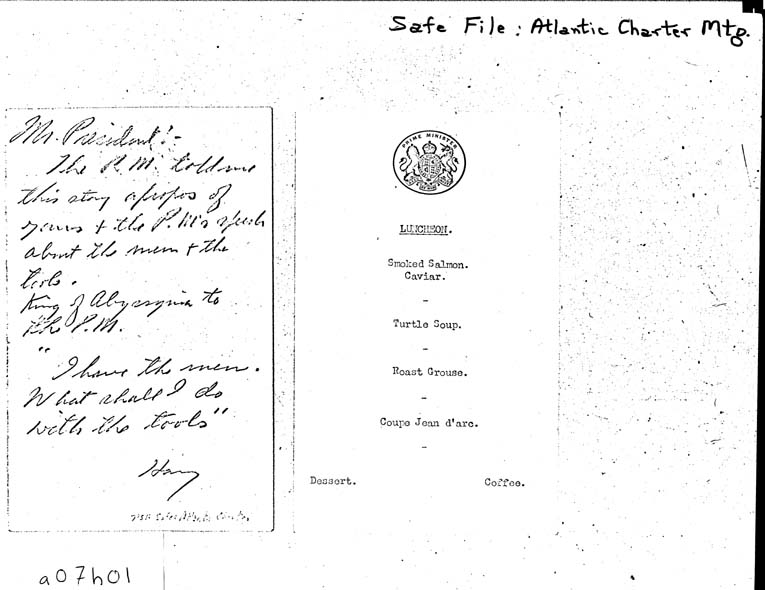 Safe File : Atlantic Charter Mtg.
Mr. President:-
The P.M. told me
this story apropos of
yours + the P.M's speech
about the men + the
tools.
King of Abyssynia to
the P.M.
"I have the men.
What shall I do
with the tools"
Harry
PRIME MINISTER
LUNCHEON.
Smoked Salmon.
Caviar.
-
Turtle Soup.
-
Roast Grouse.
-
Coupe Jean d'arc.
-
Dessert. Coffee.
a07h01